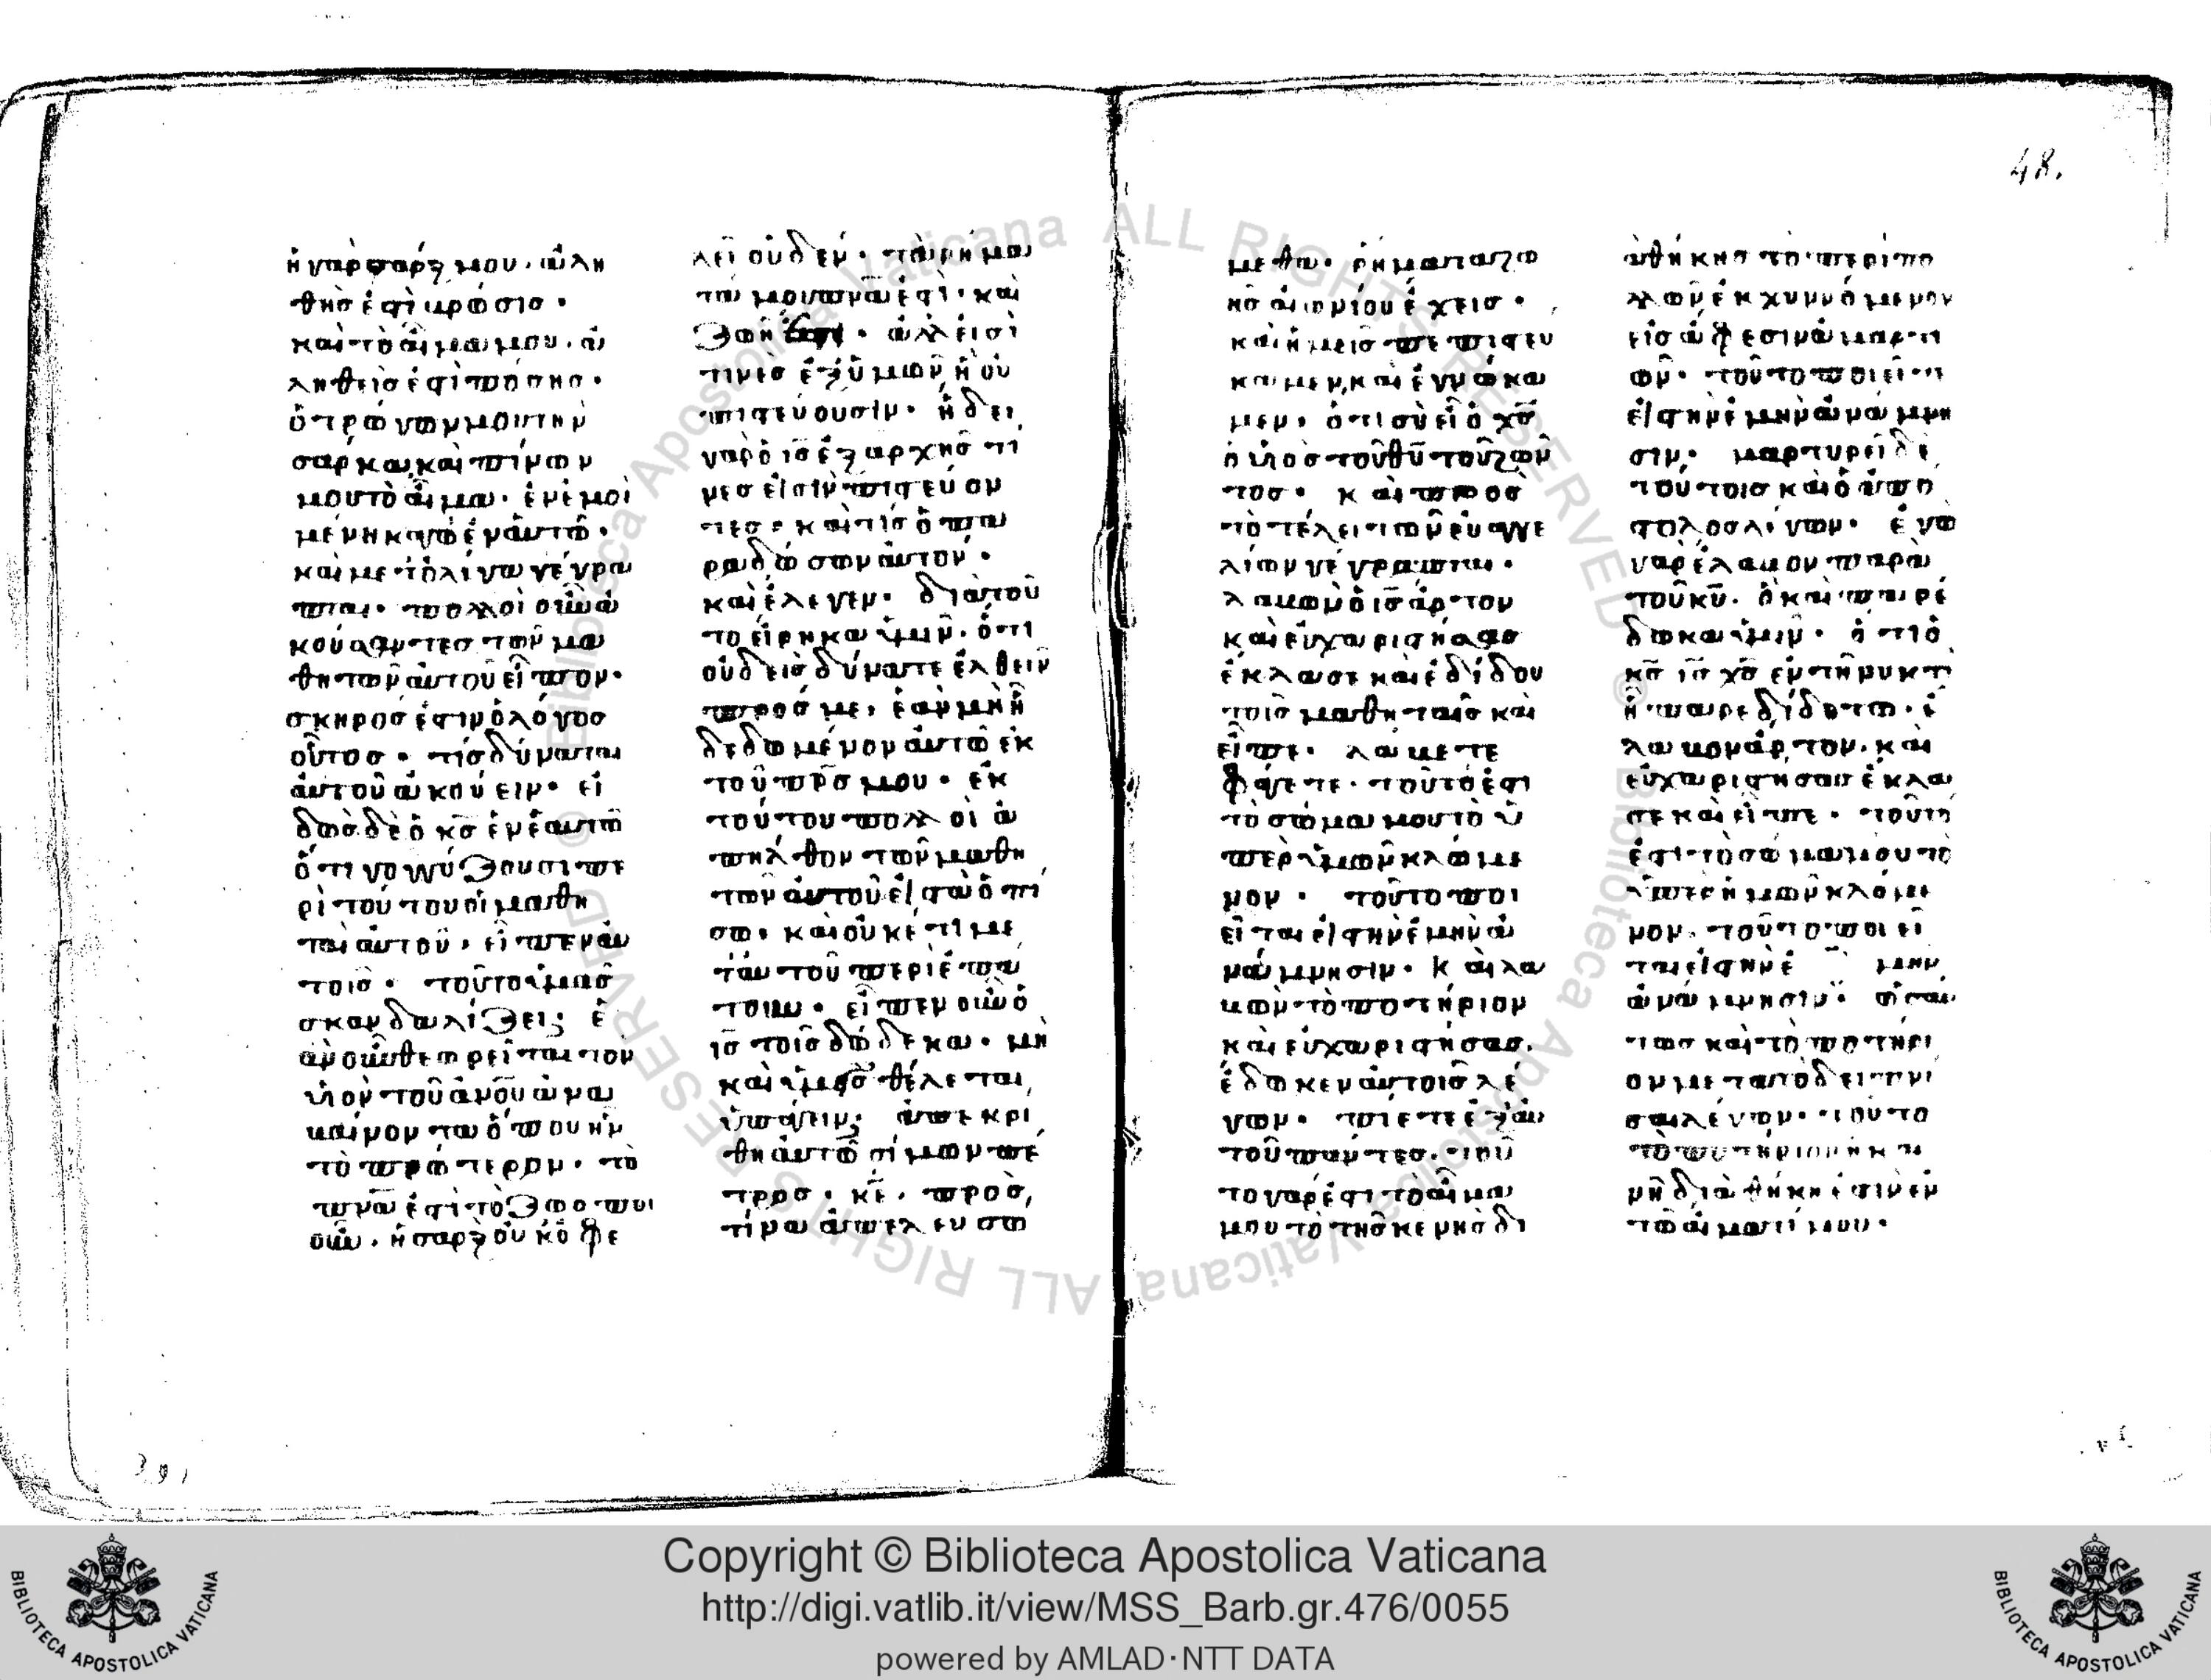 48.
ἡ γὰρ σάρξ μου. ἀλη
θής ἐστι βρῶσισ·
καὶ τὸ αἷμα μου. ἀ
ληθεὶσ ἐστὶ πόσησ·
ὁ τρώγων μου τὴν
σάρκα, καὶ πίνων
μου τὸ αἷμα. ἐν ἐμοὶ
μένη καγὼ ἐν ἀυτῶ·
καὶ μετ ὀλίγα γέγρα
πται· πολλοὶ οὖν ἀ
κούσαντεσ τῶν μα
θητῶν ἀυτοῦ εἶπον·
σκηροσ ἐστιν ὁ λόγοσ
οὗτοσ· τίσ δύναται
ἀυτοῦ ἀκούειν· εἰ
δὼσ δὲ ὁ κσ ἐν ἑαυτῶ
ὅτι γογγύζουσι πε
ρὶ τούτου οἱ μαθη
ταὶ ἀυτοῦ, εἶπεν ἀυ
τοῖσ· τοῦτο ὑμᾶσ
σκανδαλίζει; ἐ
ὰν οὖν θεωρεῖται τὸν
υἱὸν τοῦ ἀνου ἀνα
βαίνοντα ὅπου ἦν
τὸ πρώτερον· τὸ
πνα ἐστὶ τὸ ζωοποι
οῦν. ἡ σαρξ οὐκ ὀφε
λεῖ οὐδεν· τὰ ρήμα
τα μου πνα ἐστὶ· καὶ
ζωὴ· ἀλλ εἰσὶ
τινὲσ ἐξ ὑμῶν, ἡ οὐ
πιστεύουσιν· ἤδει
γαρ ὁ ισ ἐξ αρχησ τι
νεσ εἰσὶν πιστεύον
τεσ· καὶ τίσ ὁ πα
ραδώσων ἀυτον·
καὶ ἔλεγεν· διατοῦ
το εἴρηκα ὑμῖν. ὅτι
οὐδεὶσ δύνατε ἐλθειν
προσ με, ἐὰν μὴ ῆ
δεδωμένον ἀυτῶ ἐκ
τοῦ πρσ μου· ἐκ
τούτου πολλοὶ ἀ
πηλθον τῶν μαθη
τῶν ἀυτοῦ εἰσ τὰ ὀπι
σω· καὶ οὐκέτι με
τ ἀυτοῦ περιέπα
τουν· εἶπεν οὖν ὁ
ισ τοῖσ δώδεκα· μὴ
καὶ ὑμεῖσ θέλεται
ὑπάγειν; ἀπεκρι
θη ἀυτῶ σίμων πέ
τροσ· κε. προσ
τίνα ἀπελευσω
μεθα· ρήματα ζω
ησ αἰωνίου ἔχεισ·
καὶ ἡμεῖσ πεπιστευ
καμεν, καὶ ἐγνώκα
μεν· ὅτι σὺ εἶ ὁ χσ
ὁ υἱὸσ τοῦ θυ τοῦ ζῶν
τοσ· καὶ προσ
τὸ τέλει τῶν ἐυαγγε
λίων γέγραπται·
λαβὼν ὁ ισ ἄρτον
καὶ εὐχαριστήσασ
ἔκλασε καὶ ἐδίδου
τοῖσ μαθηταῖσ καὶ
εἶπε· λαβετε
φάγετε· τοῦτο ἐστι
τὸ σῶμα μου τὸ ὑ
πὲρ ὑμῶν κλώμε
νον· τοῦτο ποι
εῖται εἰσ τὴν ἐμὴν ἀ
νάμνησιν· καὶ λα
βὼν τὸ ποτήριον
καὶ εὐχαριστήσασ.
ἔδωκεν ἀυτοῖσ λέ
γων· πίετε ἐξ ἀυ
τοῦ πάντεσ. τοῦ
το γάρ ἐστι τὸ αἷμα
μου τὸ τῆσ κενησ δι
αθήκησ τὸ περὶ πο
λλῶν ἐκχυννόμενον
εἰσ ἄφεσιν ἁμαρτι
ῶν· τοῦτο ποιεῖτε
εἰσ τὴν ἐμὴν ἀνάμνη
σιν· μαρτυρεῖ δὲ
τούτοισ καὶ ὁ ἀπο
στολοσ λέγων· ἐγὼ
γὰρ ἔλαβον παρὰ
τοῦ κυ. ὃ καὶ παρέ
δωκα ὑμῖν· ὅτι ὁ
κσ ισ χσ ἐν τῆ νυκτὶ
ῆ παρεδίδοτω· ἔ
λαβον ἄρτον. καὶ
εὐχαριστησασ ἔκλα
σε καὶ εἶπε· τοῦτο
ἐστι τὸ σῶμα μου τὸ
ὑπερ ἡμῶν κλόμε
νον. τοῦτο ποιεῖ
ται εἰσ τὴν ἐ μὴν
ἀνάμνησιν· ὡσαύ
τωσ καὶ τὸ ποτήρι
ον μετα το δειπνῆ
σαι λέγων· τοῦτο
τὸ ποτήριον ἡ και
νὴ διαθήκη ἐστὶν ἐν
τῶ αἵματί μου·
Copyright © Biblioteca Apostolica Vaticana
http://digi.vatlib.it/view/MSS_Barb.gr.476/0055
powered by AMLAD·NTT DATA
BIBLIOTECA APOSTOLICA VATICANA
BIBLIOTECA APOSTOLICA VATICANA
© Biblioteca Apostolica Vaticana ALL RIGHTS RESERVED
© Biblioteca Apostolica Vaticana ALL RIGHTS RESERVED